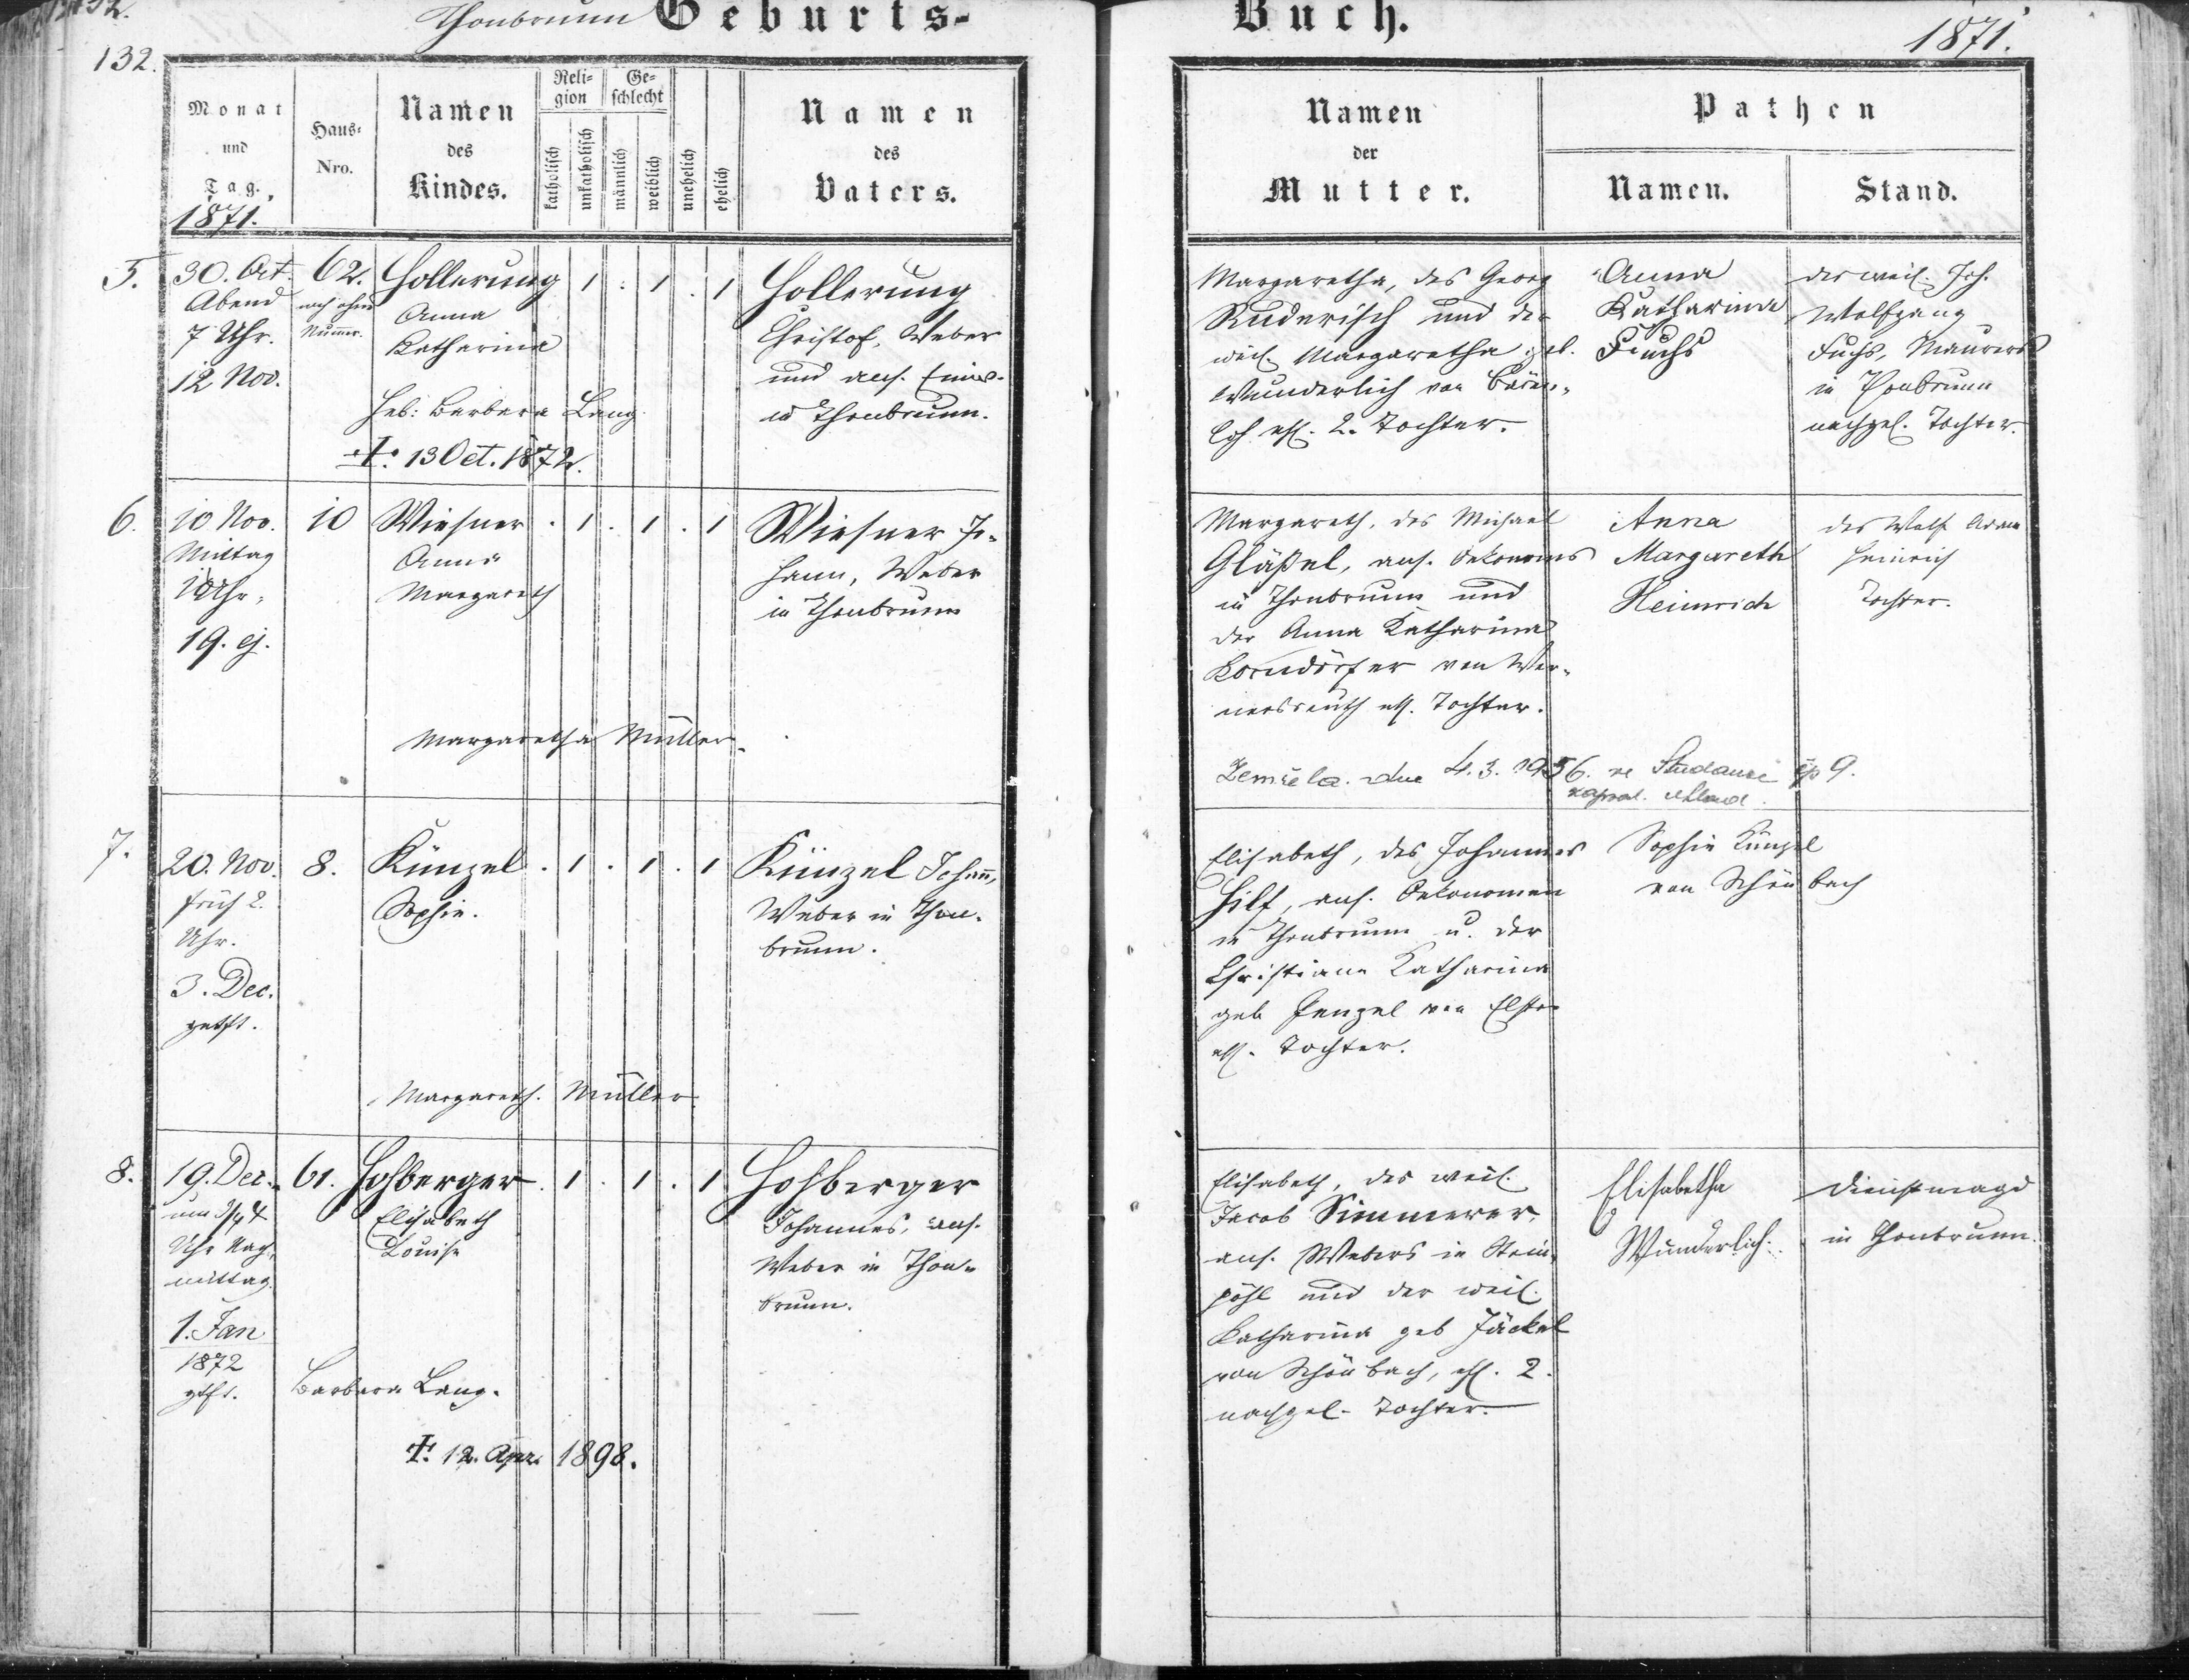 132.
Thonbrunn Geburts-
Buch.
1871.
Monat
und
Tag.
1871.
Haus-
Nro.
Namen
des
Kindes.
Reli-
gion
katholisch
unkatholisch
Ge-
schlecht
männlich
weiblich
unehelich
ehelich
Namen
des
Vaters.
Namen
der
Mutter.
Pathen
Namen.
Stand.
5.
30. Oct.
Abend
7 Uhr.
12 Nov.
62.
noch ohne
Num̄er.
Hollerung
Anna
Katharina
Heb: Barbara Lang
13 Oct. 1872.
1 1 1
Hollerung
Christof, Weber
und ans.
in Thonbrunn.
Margaretha, des Georg
Ruderisch und der
weil. Margaretha geb.
Wunderlich von Bären-
loh ehl. 2. Tochter.
Anna
Katharina
Fuchs
des weil. Joh.
Wolfgang
Fuchs, Maurers
in Thonbrunn
nachgel. Tochter.
6.
10 Nov.
Mittag
Uhr,
19. ej.
10
Wiesner
Anna
Margareth
1 1 1
Margaretha Müller
Wiesner Jo-
hann, Weber
in Thonbrunn
Margareth, des Michael
Gläßel, ans. Oekonoms
in Thonbrunn und
der Anna Katharina
Korndörfer von Wer-
nersreuth ehl. Tochter.
Anna
Margareth
Heinrich
des Wolf Adam
Heinrich
Tochter.
Zemřela dne 4. 3. 1956. ve Studánce čp 9.
7.
20. Nov.
früh 2.
Uhr.
3. Dec.
getft.
8.
Künzel
Sophie.
1 1 1
Margareth. Müller
Künzel Johann,
Weber in Thon-
brunn.
Elisabeth, des Johannes
Hilf, ans. Oekonomen
in Thonbrunn u. der
Christiane Katharina
geb Penzel von Elster
ehl. Tochter.
Sophie Künzel
von Schönbach
8.
19. Dec.
um 3/4 4
Uhr Nach-
mittag.
1. Jan
1872
gtft.
61.
Hohberger
Elisabeth
Louise
1 1 1
Barbara Lang.
12. Apr. 1898.
Hohberger
Johannes, ans.
Weber in Thon-
brunn.
Elisabeth, des weil.
Jacob Simmerer,
ans. Webers in Stein-
pöhl und der weil.
Katharina geb Jäckel
von Schönbach, ehl. 2.
nachgel. Tochter.
Elisabetha
Wunderlich
Dienstmagd
in Thonbrunn.